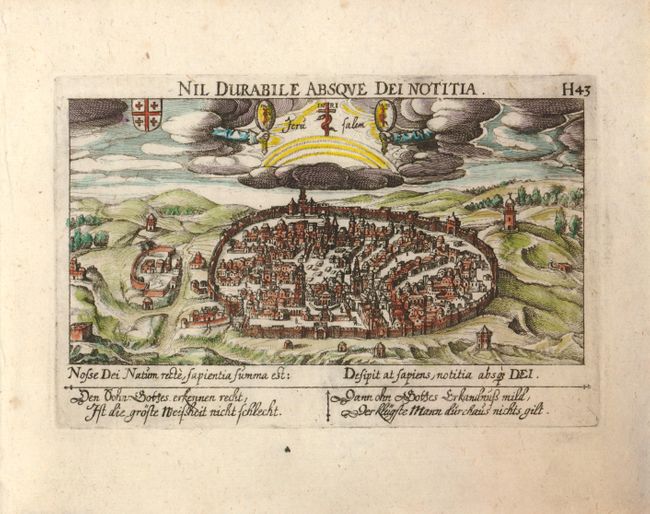 NIL DURABILE ABSQVE DEI NOTITIA.
H43
INRI
Jeru salem
Nosse Dei Natum rectè, sapientia summa est:
Desipit at sapiens, notitia absq; DEI.
Den Sohn Gottes erkennen recht,
Ist die gröste Weißheit nicht schlecht.
Dann ohn Gottes Erkandnuß mild,
Der klügste Mann dürchaus nichts gilt.